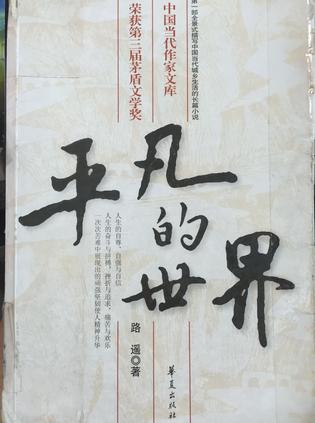 第一部全景式描写中国当代城乡生活的长篇小说
中国当代作家文库
荣获第三届茅盾文学奖
平凡的世界
人生的自尊、自强与自信
人生的奋斗与拼搏、挫折与追求、痛苦与欢乐
一次次苦难中展现出的顽强坚韧使人精神升华
路 遥◎著
华夏出版社